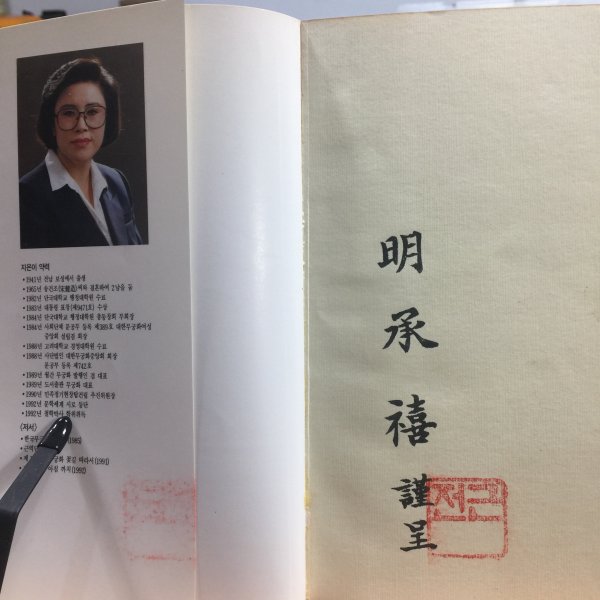 지은이 약력
• 1941년 전남 보성에서 출생
• 1965년 송진조(宋鎭造)씨와 결혼하여 2남을 둠
• 1982년 단국대학교 행정대학원 수료
• 1983년 대통령 표창(제9471호) 수상
• 1984년 단국대학교 행정대학원 총동창회 부회장
• 1984년 사회단체 문공부 등록 제389호 대한무궁화여성
중앙회 설립겸 회장
• 1988년 고려대학교 경영대학원 수료
• 1988년 사단법인 대한무궁화중앙회 회장
문공부 등록 제742호
• 1989년 월간 무궁화 발행인 겸 대표
• 1989년 도서출판 무궁화 대표
• 1990년 민족정기현창탑건립 추진위원장
• 1992년 문학세계 시로 등단
• 1992년 철학박사 학위취득
〈저서〉
• 한국무궁
• 근역
궁화 꽃길 따라서(1991)
아침 까치(1992)
明承禧
謹呈